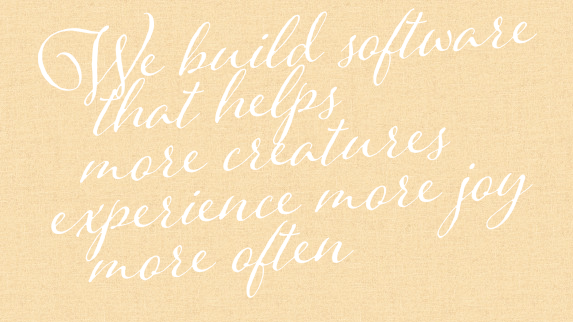 We build software
that helps
more creatures
experience more joy
more often